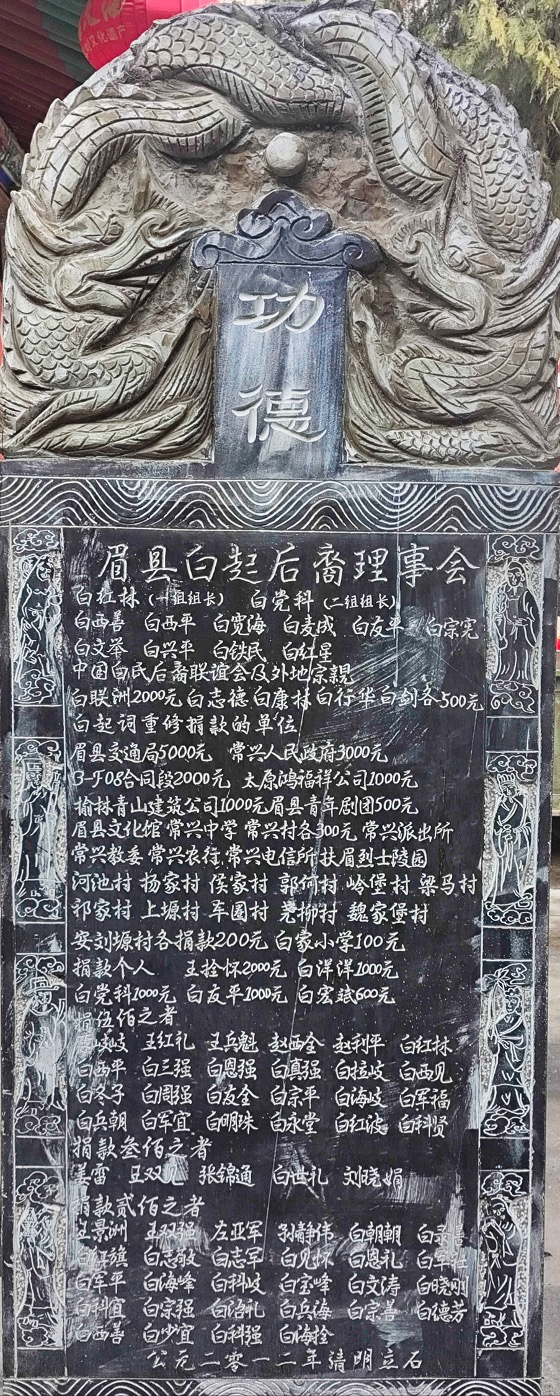 文化遗产
功德
眉县白起后裔理事会
白红林(一组组长) 白党科(二组组长)
白西善 白西平 白宽海 白麦成 白友平 白宗宪
白文举 白兴平 白铁民 白红星
中国白氏后裔联谊会及外地宗親
白联洲2000元 白志德 白康林 白行华 白剑各500元
白起祠重修捐款的单位
眉县交通局5000元 常兴人民政府3000元
3-F08合同段2000元 太原鸿福祥公司1000元
榆林青山建筑公司1000元 眉县青年剧团500元
眉县文化馆 常兴中学 常兴村各300元 常兴派出所
常兴教委 常兴农行 常兴电信所 扶眉烈士陵园
河池村 杨家村 侯家村 郭何村 岭堡村 梁马村
祁家村 上塬村 车圈村 尧柳村 魏家堡村
安刘塬村各捐款200元 白家小学100元
捐款个人 王拴怀2000元 白洋洋1000元
白党科1000元 白友平1000元 白宏斌600元
捐伍佰之者
岐岐 王红礼 王兵魁 赵西全 赵利平 白红林
白西平 白三强 白恩强 白真强 白拉岐 白西见
白冬子 白周强 白友全 白宗平 白海岐 白军福
白兵朝 白军宜 白明珠 白永堂 白红波 白科贤
捐款叁佰之者
姜雷 王双 张锦通 白世礼 刘晓娟
捐款贰佰之者
王景洲 王双强 左亚军 孙静伟 白朝朝 白录
白红旗 白志敏 白志军 白见怀 白恩礼 白军
白军平 白海峰 白科岐 白宝峰 白文涛 白晓刚
白科宜 白宗强 白治礼 白兵海 白宗善 白德芳
白西善 白少宜 白科强 白海拴
公元二零一二年清明立石